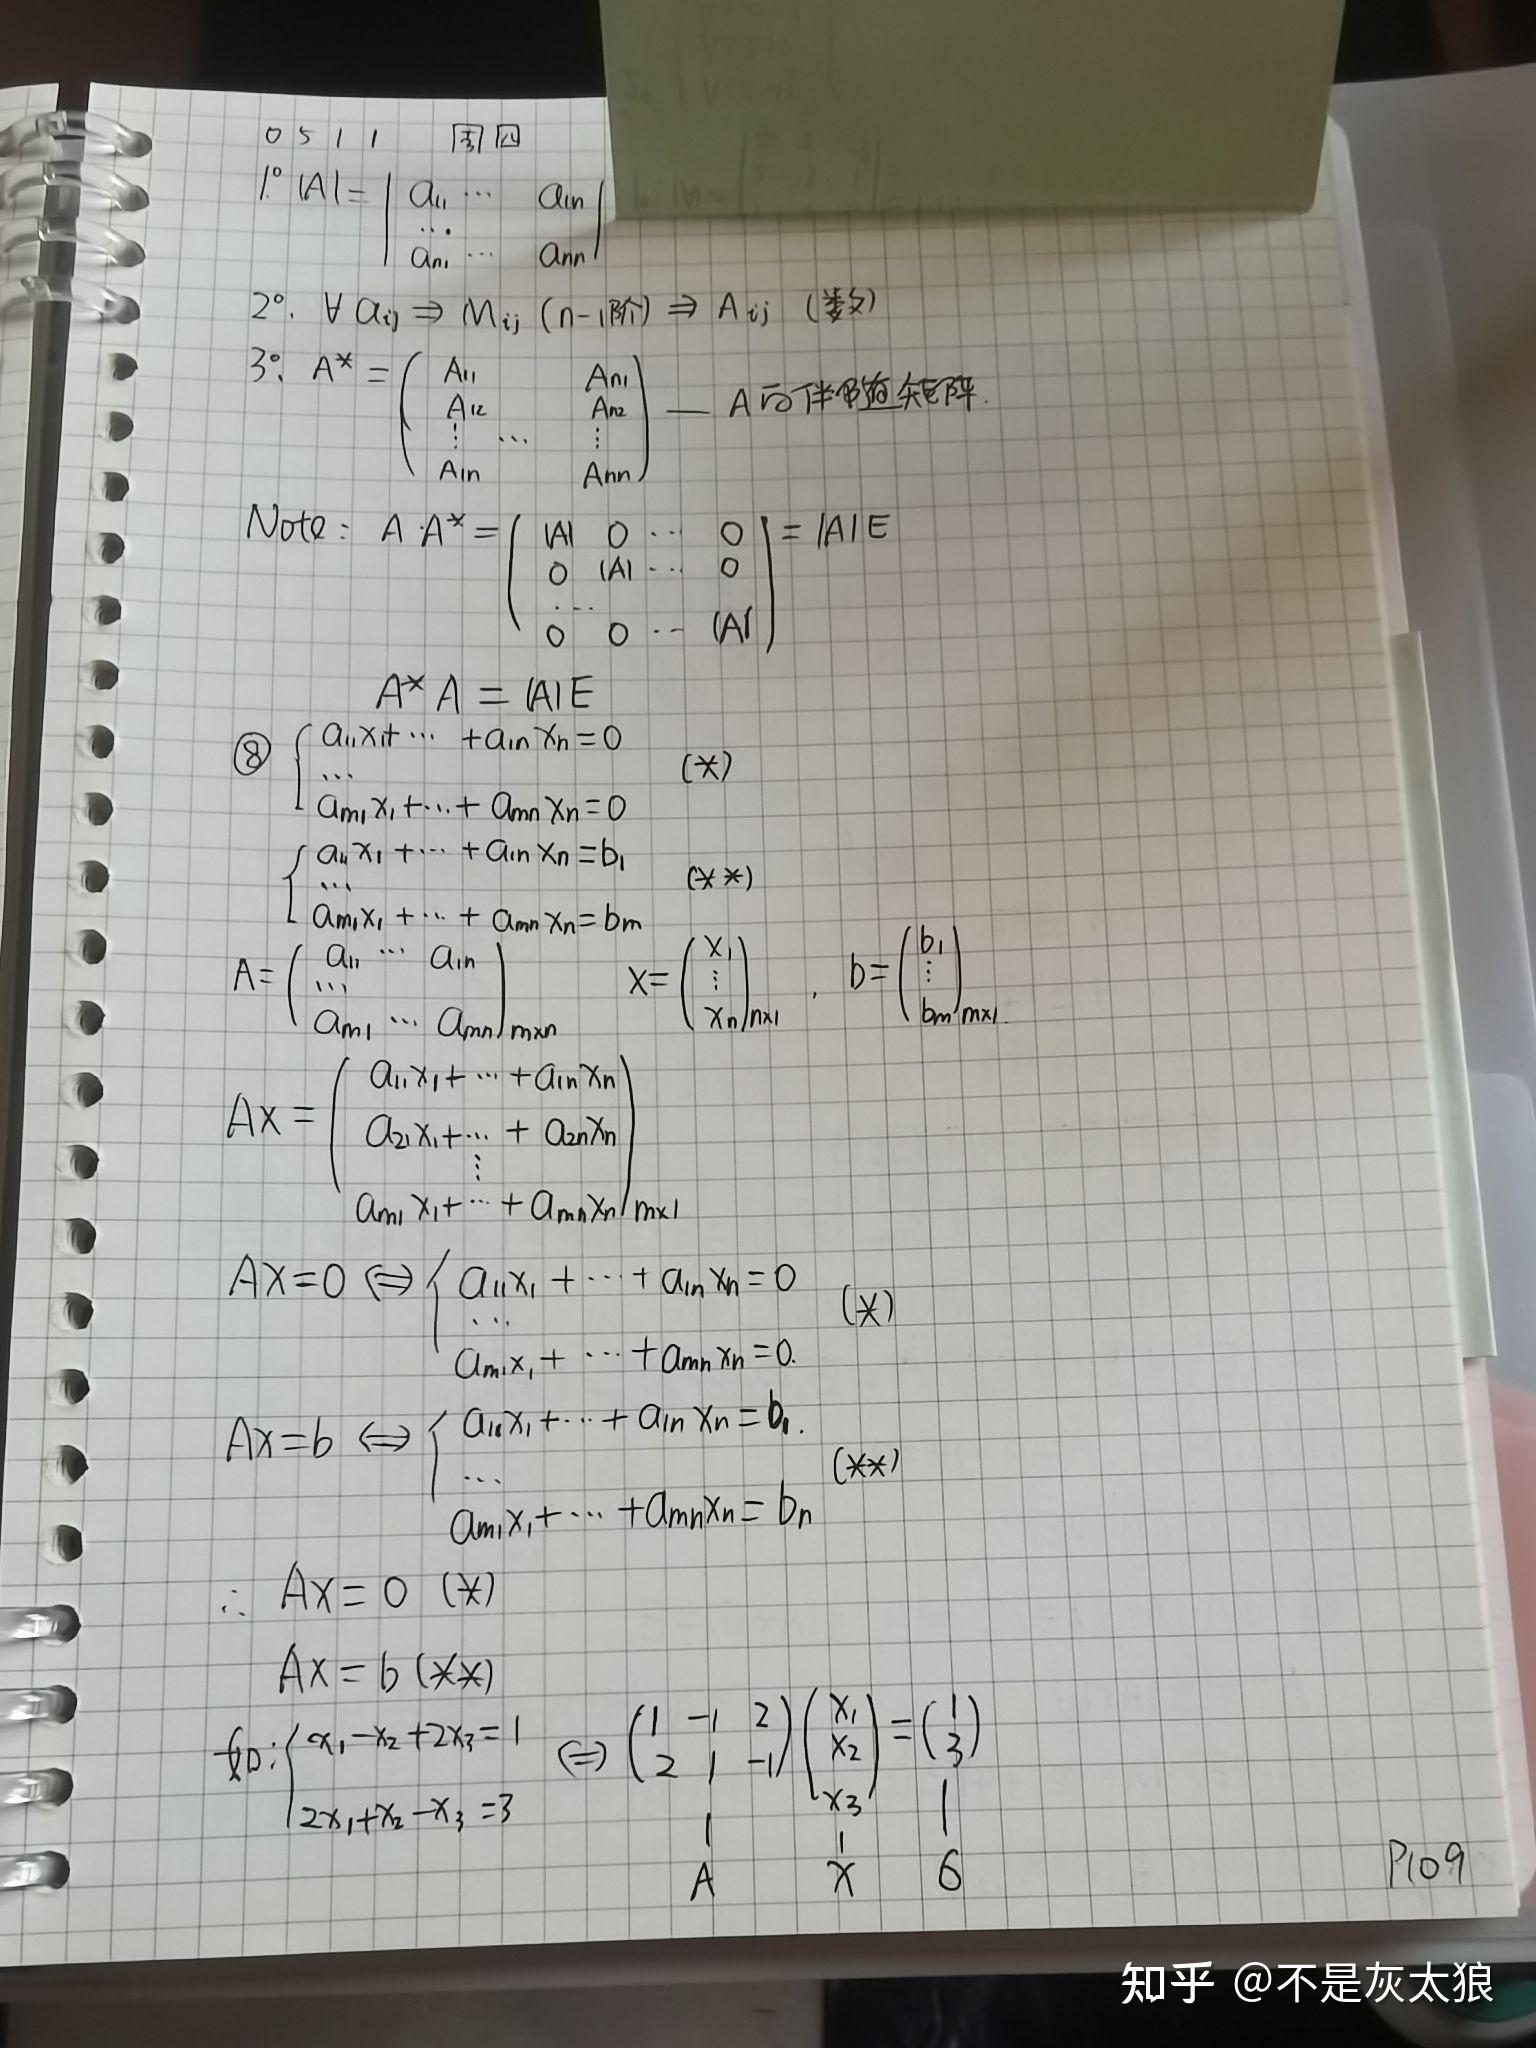 0511 周四
1° |A| = | a₁₁ ⋯ a₁ₙ |
⋯
aₙ₁ ⋯ aₙₙ
2°. ∀ aᵢⱼ ⇒ Mᵢⱼ (n-1阶) ⇒ Aᵢⱼ (数)
3°. A* = ( A₁₁ Aₙ₁
A₁₂ Aₙ₂
⋮ ⋯ ⋮
A₁ₙ Aₙₙ ) — A 的伴随矩阵.
Note: A·A* = ( |A| 0 ⋯ 0
0 |A| ⋯ 0
⋯
0 0 ⋯ |A| ) = |A|E
A*A = |A|E
⑧ { a₁₁x₁+⋯ +a₁ₙxₙ=0
⋯ (*)
aₘ₁x₁+⋯+ aₘₙxₙ=0
{ a₁₁x₁+⋯ +a₁ₙxₙ=b₁
⋯ (**)
aₘ₁x₁+⋯+ aₘₙxₙ=bₘ
A= ( a₁₁ ⋯ a₁ₙ
⋯
aₘ₁ ⋯ aₘₙ )m×n X= ( x₁
⋮
xₙ )n×1 , b= ( b₁
⋮
bₘ )m×1.
AX = ( a₁₁x₁+⋯+a₁ₙxₙ
a₂₁x₁+⋯+ a₂ₙxₙ
⋮
aₘ₁x₁+⋯+aₘₙxₙ )m×1
AX=0 ⇔ { a₁₁x₁+⋯+a₁ₙxₙ=0
⋯ (*)
aₘ₁x₁+ ⋯+aₘₙxₙ=0.
AX=b ⇔ { a₁₁x₁+⋯+a₁ₙxₙ=b₁.
⋯ (**)
aₘ₁x₁+⋯ +aₘₙxₙ=bₙ
∴ AX=0 (*)
AX=b (**)
如: { x₁-x₂+2x₃=1
2x₁+x₂-x₃=3 ⇔ ( 1 -1 2
2 1 -1 ) ( x₁
x₂
x₃ ) = ( 1
3 )
| | |
A X b
P109
知乎 @不是灰太狼